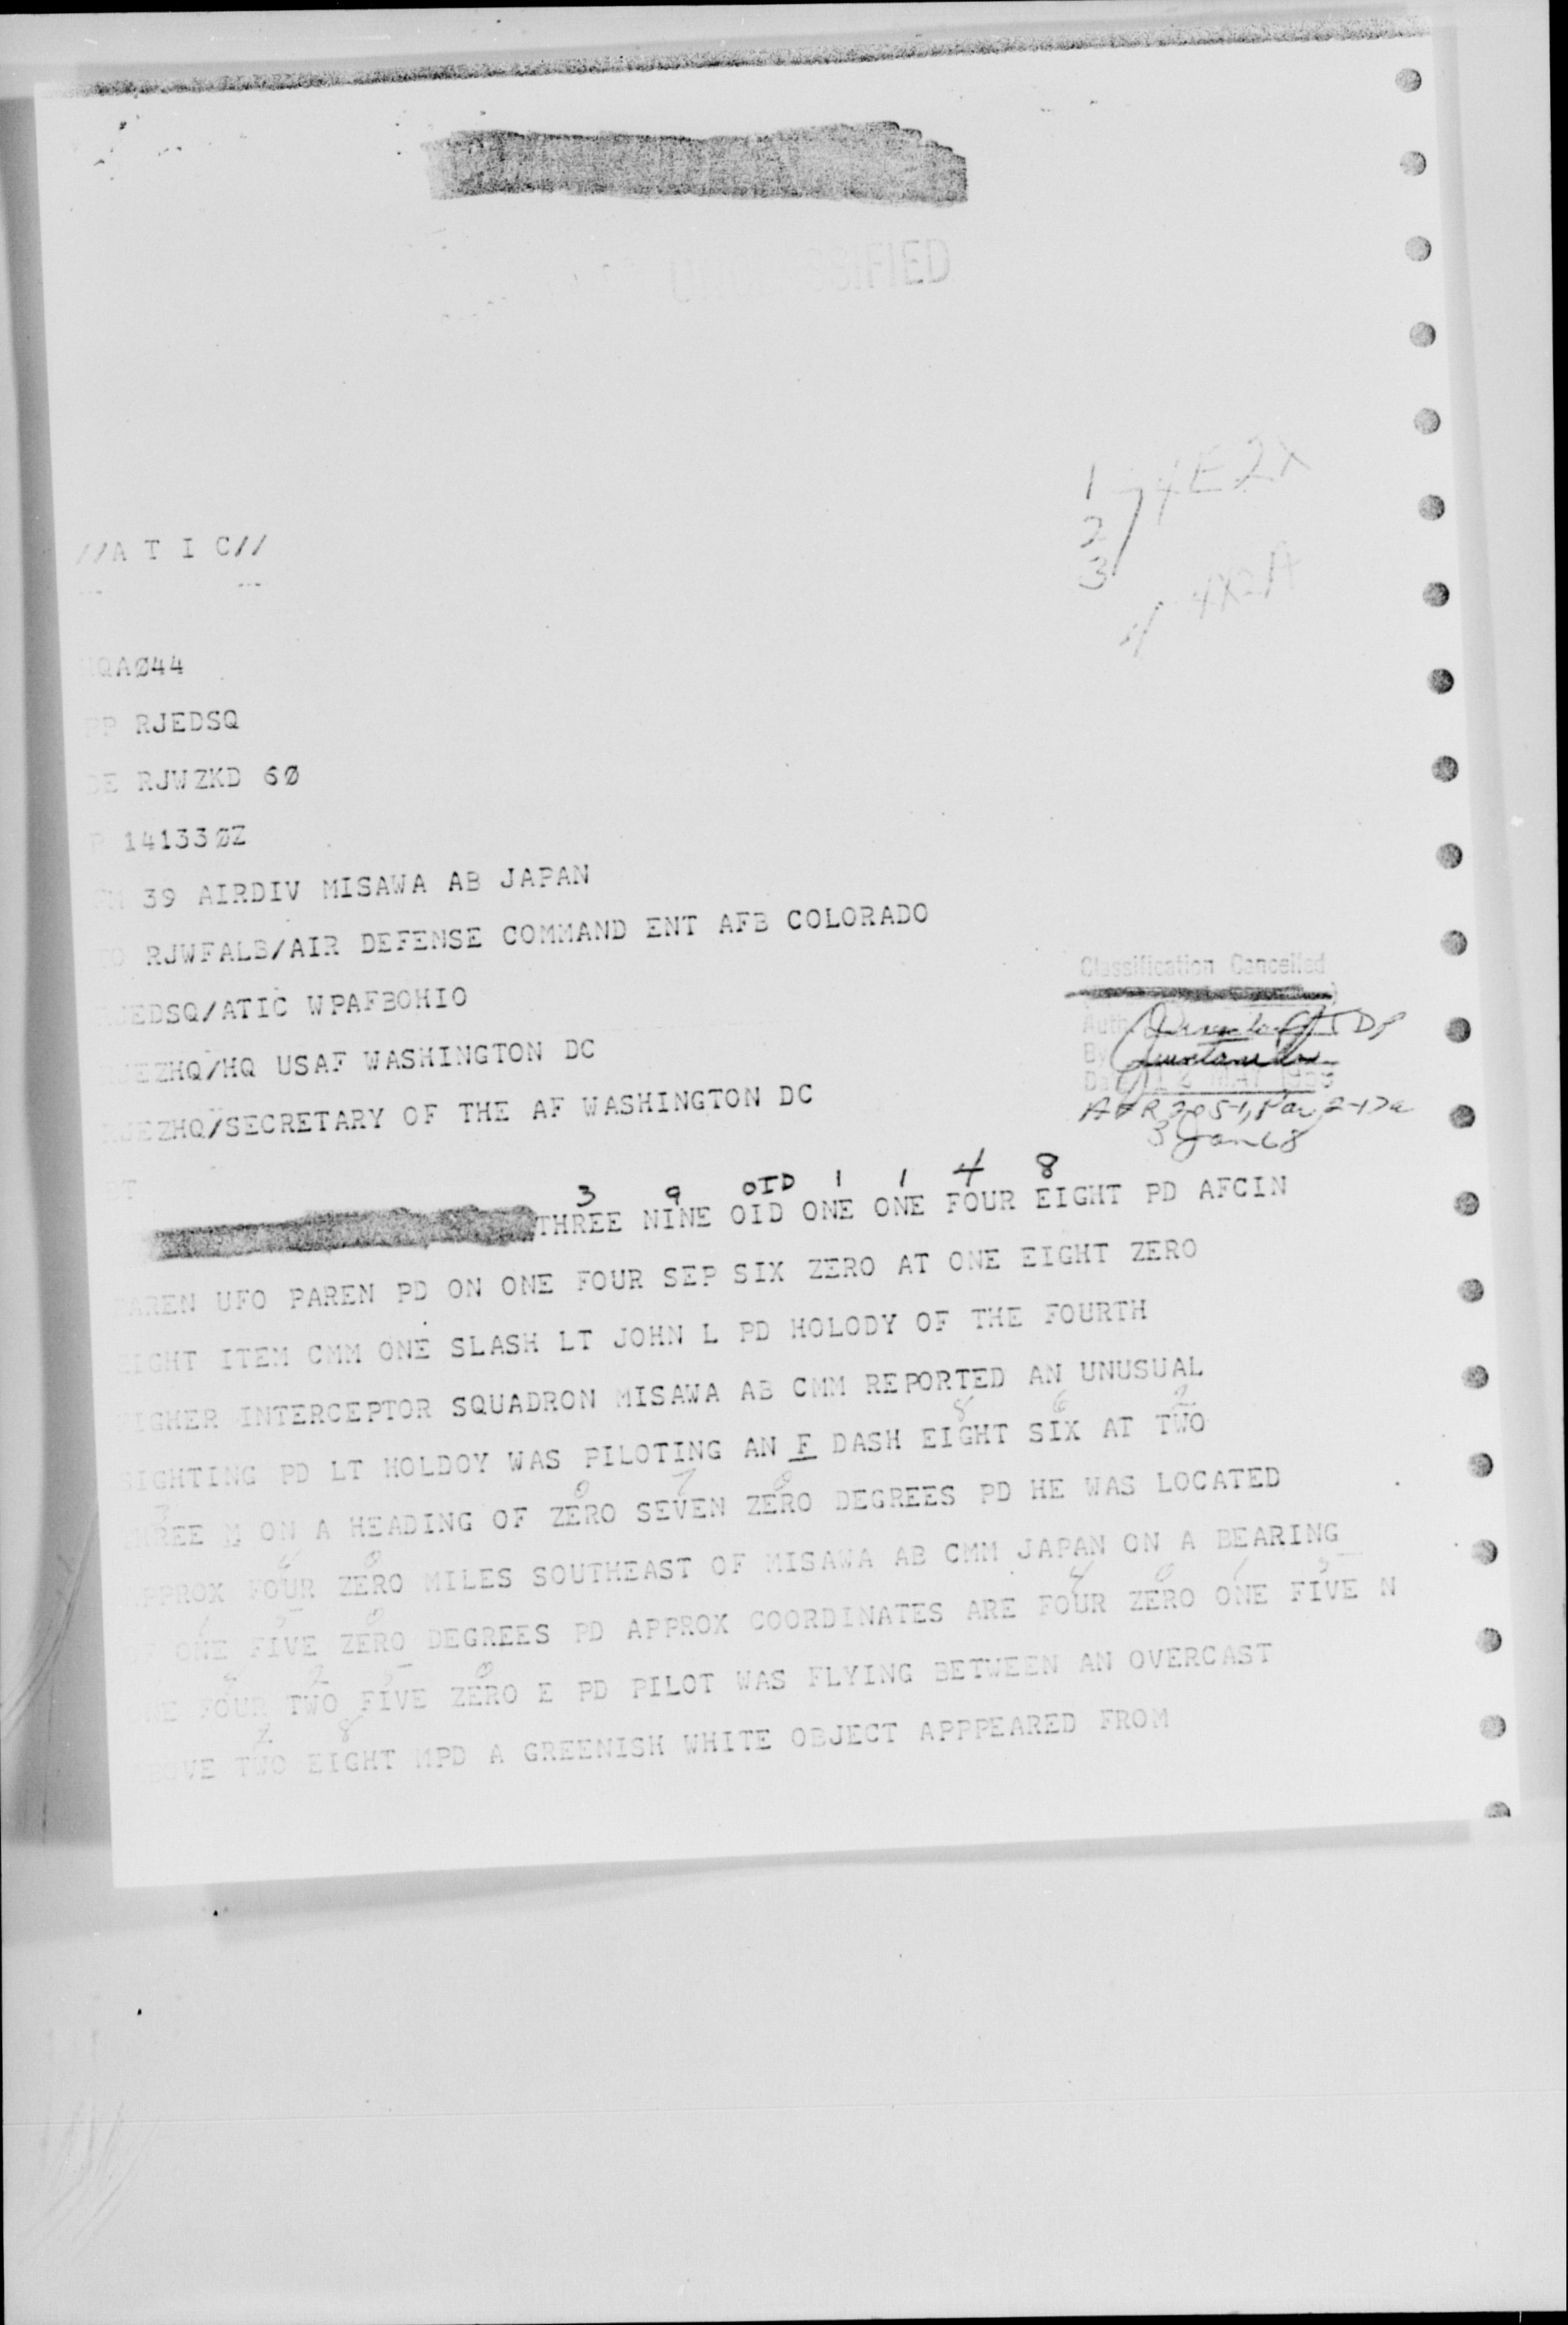 UNCLASSIFIED
1
2
3
4E2X
4 4X2A
//A T I C//
HQAØ44
PP RJEDSQ
DE RJWZKD 6Ø
P 14133ØZ
FM 39 AIRDIV MISAWA AB JAPAN
TO RJWFALB/AIR DEFENSE COMMAND ENT AFB COLORADO
RJEDSQ/ATIC WPAFBOHIO
RJEZHQ/HQ USAF WASHINGTON DC
RJEZHQ/SECRETARY OF THE AF WASHINGTON DC
Classification Cancelled
Auth
By
Date 12 MAY
AFR 205-1, Par 2-17a
3 Jan 68
BT
3 9 OID 1 1 4 8
THREE NINE OID ONE ONE FOUR EIGHT PD AFCIN
PAREN UFO PAREN PD ON ONE FOUR SEP SIX ZERO AT ONE EIGHT ZERO
EIGHT ITEM CMM ONE SLASH LT JOHN L PD HOLODY OF THE FOURTH
FIGHER INTERCEPTOR SQUADRON MISAWA AB CMM REPORTED AN UNUSUAL
8 6 2
SIGHTING PD LT HOLDOY WAS PILOTING AN F DASH EIGHT SIX AT TWO
3 0 7 0
THREE M ON A HEADING OF ZERO SEVEN ZERO DEGREES PD HE WAS LOCATED
4 0
APPROX FOUR ZERO MILES SOUTHEAST OF MISAWA AB CMM JAPAN ON A BEARING
1 5 0 4 0 1 5
OF ONE FIVE ZERO DEGREES PD APPROX COORDINATES ARE FOUR ZERO ONE FIVE N
4 2 5 0
ONE FOUR TWO FIVE ZERO E PD PILOT WAS FLYING BETWEEN AN OVERCAST
2 8
ABOVE TWO EIGHT MPD A GREENISH WHITE OBJECT APPPEARED FROM